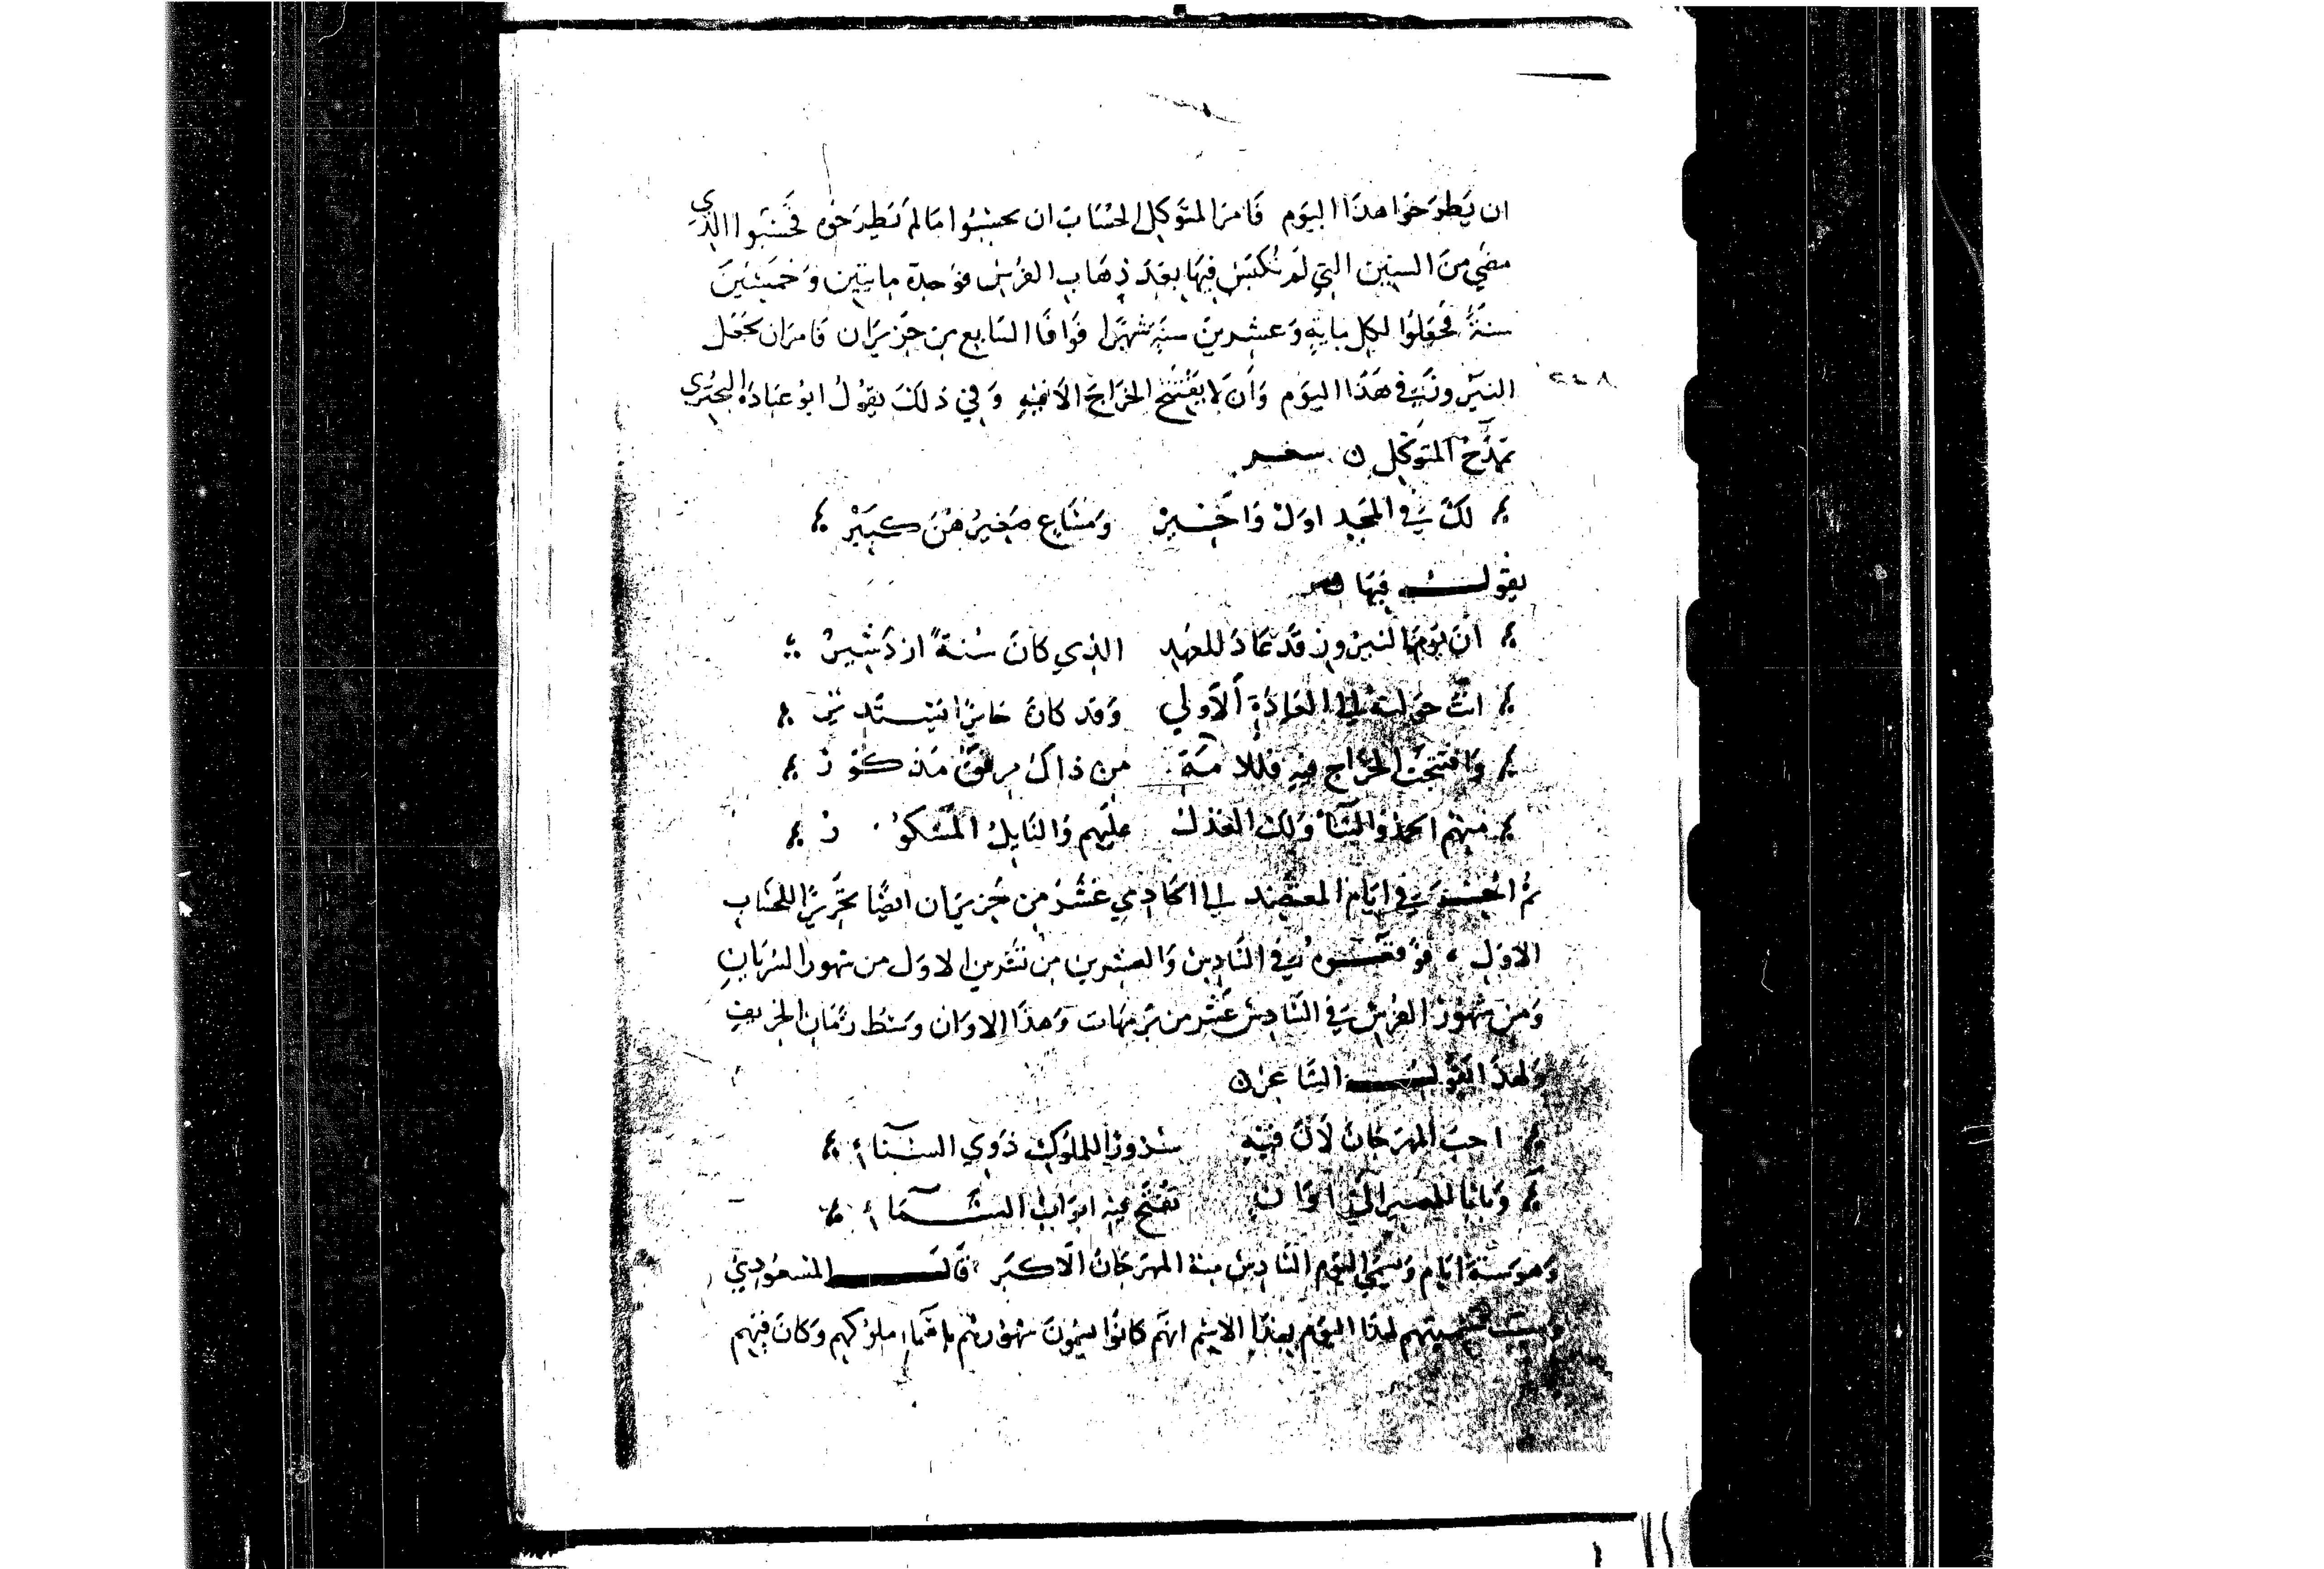 ان يَطرَحوا هذا اليَوم فَامرَ المتوَكِل الحسَابَ ان يحسبُوا مَا لمَ تطرَحوُه فحَسَبوا الذي
مضي منَ السِنين التي لمَ تُكبَسُ فيهَا بعَد ذِهَاب الفرُس فوَجدَهَ مايتين وَخمسَينَ
سنةً فجعَلوُا لكِل مايةٍ وَعشرينَ سنةٍ شهرًا فوَافَا السَابع من حَزيَران فَامرَان يجعَل
النيَروُز في هَذَا اليوَم وَأن لا يفُتتح الخرَاجَ الاَ فيهِ وَفي ذلكَ يقوُلُ ابوُ عبَادَة البحتري
٢٤٨
يمَدَح المتوَكِل ن شعر
لكَ في المَجدِ اولٌ وَاخيرْ وَمسَاعٍ صَغيرُهنَ كبيَرْ
يقول فيهَا
انَ يوَم النيرُوز قَد عَادَ للعَهدِ الذي كانَ سُنةً ازدَشيرُ
انتَ حوَلتهُ الي الحَالةِ الاَولي وَقد كانَ حَايرًا يستَديرُ
وَافتتحتَ الخرَاج فيهِ فللامَة من ذاكَ مرفقٌ مَذكوُرُ
منهمُ الحمدُ والثنَا وَلكَ العَدلُ عليَهم وَالنَايلُ المَشكوُرُ
ثمُ اخُر في ايَام المعتضد الي الحَادِي عَشَرُ من حَزيرَان ايضًا تحَريرًا للحسَاب
الاوَل فوُقعَوهُ في السَادِس وَالعشرين من تشرين الاوَل من شهور السُريانِ
وَمن شهوُر الفرُس في السَادِس عشَر من برمهَات وَهذَا الاوَان وسَط زمَان الخريف
وَلهذَا يقوُل الشَاعر ن
احبَ المهرَجَان لاَنَ فيهِ سرورًا للملوُكِ ذَوي السَنآءِ
وَبابًا للمَصير الي اوَانٍ تفتَح فيه ابوَابُ السَمآءِ
وَهوَ ستة ايَام وَيسمُي اليوَم السَادِس منهُ المهرَجَانَ الاكبَر قَالَ المسعوُدي
وَسببَ تسميتهِم لهذَا اليوَم بهذَا الاسِم انهَم كانوُا يسموُنَ شهوُرهمُ باسمآءِ ملوُكهِم وَكانَ فيهِم